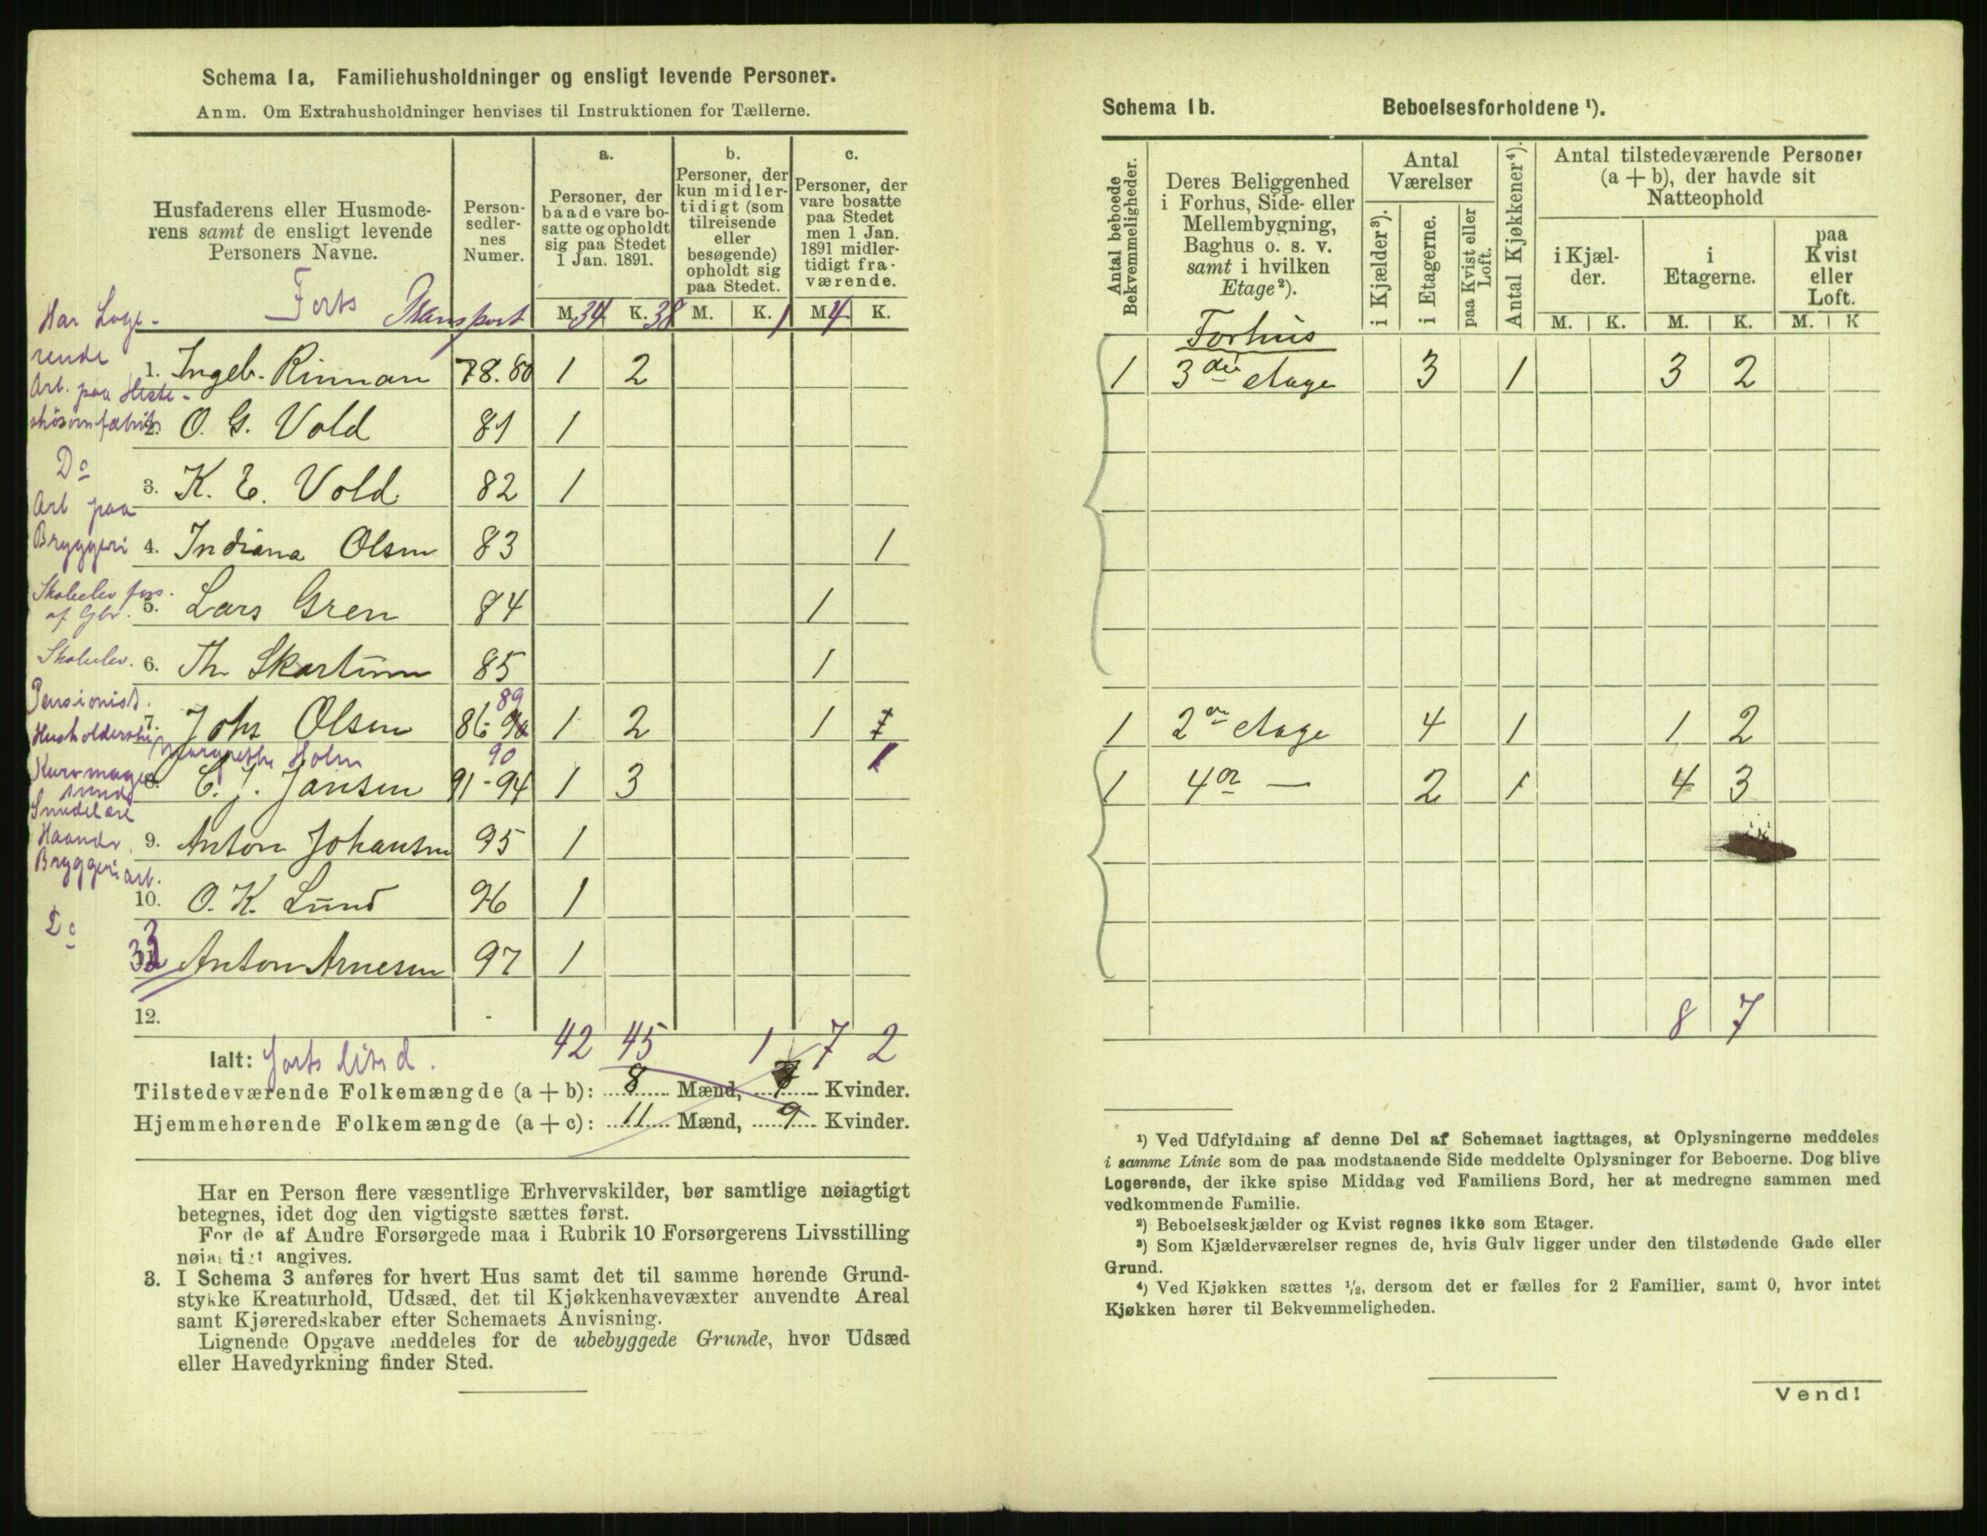 Schema 1a. Familiehusholdninger og ensligt levende Personer.
Anm. Om Extrahusholdninger henvises til Instruktionen for Tællerne.
Husfaderens eller Husmode-
rens samt de ensligt levende
Personers Navne.
Person-
sedler-
nes
Numer.
a.
Personer, der
baade vare bo-
satte og opholdt
sig paa Stedet
1 Jan. 1891.
b.
Personer, der
kun midler-
tidigt (som
tilreisende
eller
besøgende)
opholdt sig
paa Stedet.
c.
Personer, der
vare bosatte
paa Stedet
men 1 Jan.
1891 midler-
tidigt fra-
værende.
Forts Transport M. 34 K. 38 M. K. 1 M. 4 K.
Har Loge-
rende
1. Ingeb. Rinnan 78.80 1 2
Arb. paa Heste-
skosømfabrik
2. O. G. Vold 81 1
Do
3. K. E. Vold 82 1
Arb paa
Bryggeri 4. Indiana Olsen 83 1
Skoleelev fors.
af Gbr. 5. Lars Gren 84 1
Skoleelev. 6. Th. Skartum 85 1
Pensionist.
7. Johs Olsen 86- 89 1 2 1 1
Husholderske Margrethe Holm 90 1
Kurvmager
8. C. J. Jansen 91-94 1 3
9. Anton Johansen 95 1
Haandv.
Bryggeri arb.
10. O. K. Lund 96 1
Do
33 Anton Arnesen 97 1
12.
Ialt: 42 45 1 7 2
Tilstedeværende Folkemængde (a + b): 8 Mænd, 7 Kvinder.
Hjemmehørende Folkemængde (a + c): 11 Mænd, 9 Kvinder.
Har en Person flere væsentlige Erhvervskilder, bør samtlige nøiagtigt
betegnes, idet dog den vigtigste sættes først.
For de af Andre Forsørgede maa i Rubrik 10 Forsørgerens Livsstilling
nøiagtigt angives.
3. I Schema 3 anføres for hvert Hus samt det til samme hørende Grund-
stykke Kreaturhold, Udsæd, det til Kjøkkenhavevæxter anvendte Areal
samt Kjøreredskaber efter Schemaets Anvisning.
Lignende Opgave meddeles for de ubebyggede Grunde, hvor Udsæd
eller Havedyrkning finder Sted.
Schema 1b. Beboelsesforholdene ¹).
Antal beboede
Bekvemmeligheder.
Deres Beliggenhed
i Forhus, Side- eller
Mellembygning,
Baghus o. s. v.
samt i hvilken
Etage²).
Antal
Værelser
i Kjælder³).
i Etagerne.
paa Kvist eller
Loft.
Antal Kjøkkener⁴).
Antal tilstedeværende Personer
(a + b), der havde sit
Natteophold
i Kjæl-
der.
i
Etagerne.
paa
Kvist
eller
Loft.
M. K. M. K. M. K
Forhus
1 3die etage 3 1 3 2
1 2en etage 4 1 1 2
1 4de — 2 1 4 3
8 7
¹) Ved Udfyldning af denne Del af Schemaet iagttages, at Oplysningerne meddeles
i samme Linie som de paa modstaaende Side meddelte Oplysninger for Beboerne. Dog blive
Logerende, der ikke spise Middag ved Familiens Bord, her at medregne sammen med
vedkommende Familie.
²) Beboelseskjælder og Kvist regnes ikke som Etager.
³) Som Kjælderværelser regnes de, hvis Gulv ligger under den tilstødende Gade eller
Grund.
⁴) Ved Kjøkken sættes ¹/₂, dersom det er fælles for 2 Familier, samt 0, hvor intet
Kjøkken hører til Bekvemmeligheden.
Vend!